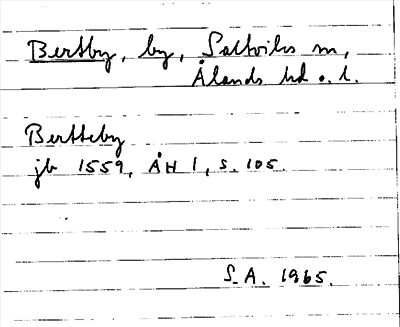 Bertby, by, Saltviks sn,
Ålands hd o. l.
Bertteby
jb 1559, ÅH 1, s. 105.
S.A. 1965.